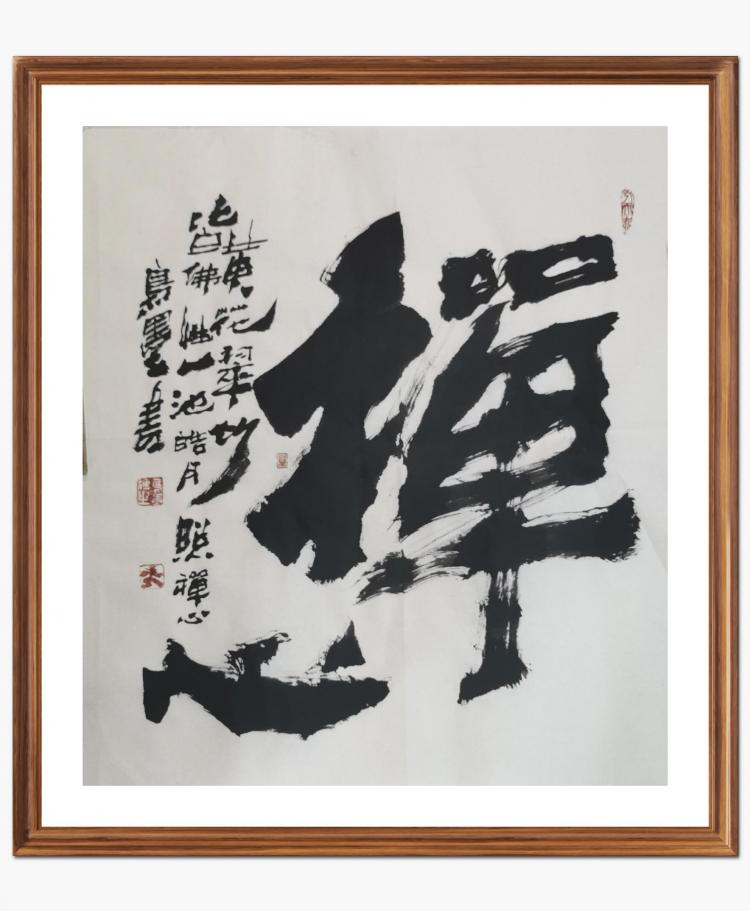 禪心
黃花翠竹
皆佛性一池皓月照禪心
墨書